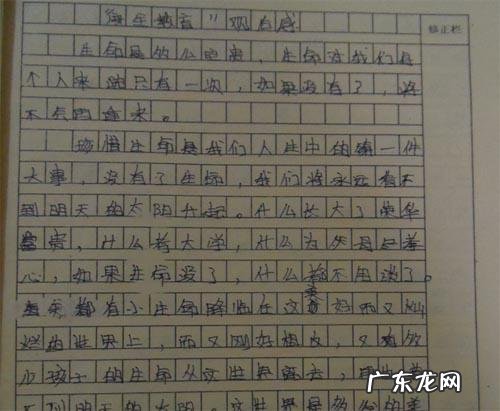 "每年教育"观后感
修正栏
生命是的公距离，生命对我们每
个人来说只有一次，如果没有了，将
不会再重来。
珍惜生命是我们人生中的第一件
大事，没有了生命，我们将永远看不
到明天的太阳升起。什么长大了荣华
富贵，什么考大学，什么为父母尽孝
心，如果生命没了，什么都不用谈了。
每天都有小生命降临在这美好而又灿
烂的世界上，而又刚好相反，又有多
少孩子的生命从这世界离去，
不到明天的太阳。这世界是
广东龙网